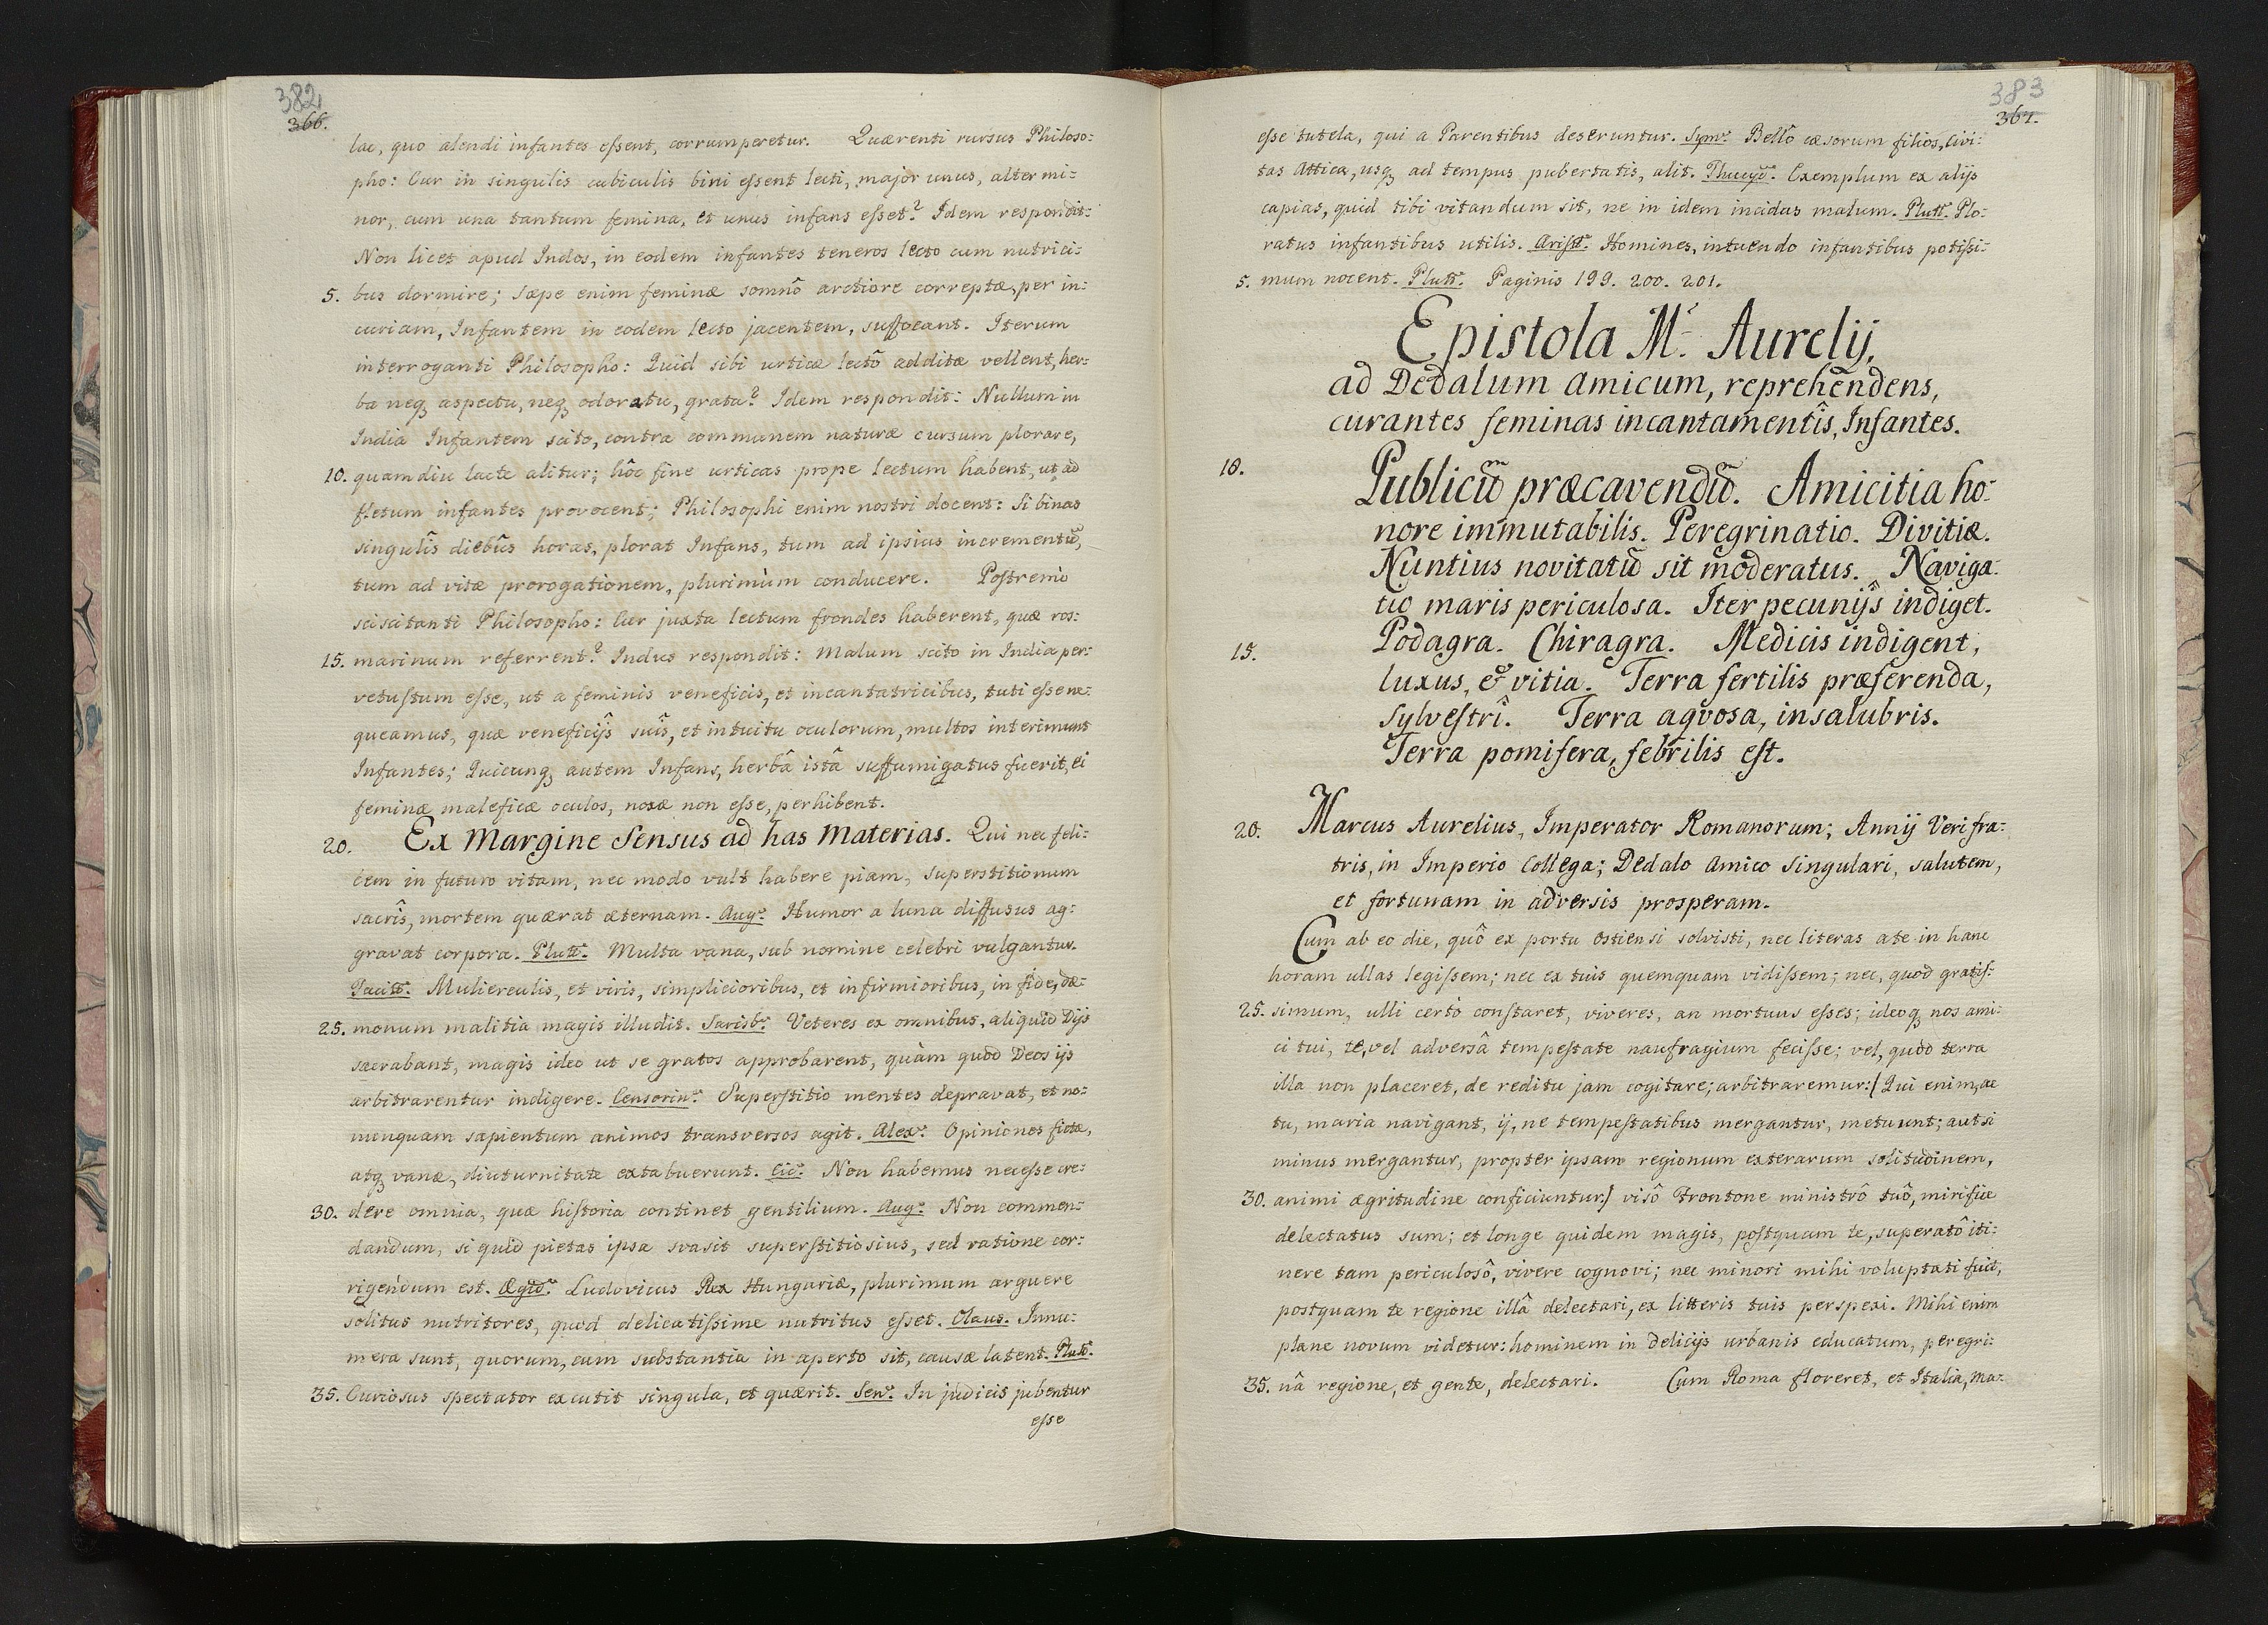 382
366.
lac, quo alendi infantes essent, corrumperetur. Quærenti rursus Philoso:
pho: Cur in singulis cubiculis bini essent lecti, major unus, alter mi:
nor, cum una tantum femina, et unus infans esset? Idem respondit:
Non licet apud Indos, in eodem infantes teneros lecto cum nutrici:
5. bus dormire; sæpe enim feminæ somnô arctiore correptæ, per in:
curiam, Infantem in eodem lecto jacentem, suffocant. Iterum
interroganti Philosopho: Quid sibi urticæ lectô additæ vellent, her:
ba neq, aspectu, neq, odoratu, grata? Idem respondit: Nullum in
India Infantem scito, contra communem naturæ cursum plorare,
10. quamdiu lacte alitur; hôc fine urticas prope lectum habent, ut ad
fletum infantes provocent; Philosophi enim nostri docent: Si binas
singulîs diebûs horas, plorat Infans, tum ad ipsius incrementũ,
tum ad vitæ prorogationem, plurimùm conducere. Postremò
sciscitanti Philosopho: Cur juxta lectum frondes haberent, quæ ros:
15. marinum referrent? Indus respondit: Malum scito in India per:
vetustum esse, ut a feminis veneficis, et incantatricibus, tuti esse ne:
queamus, quæ veneficijs suîs, et intuitu oculorum, multos interimunt
Infantes; Quicunq, autem Infans, herbâ istâ suffumigatus fuerit, ei
feminæ maleficæ oculos, noxæ non esse, perhibent.
20. Ex Margine Sensus ad has Materias. Qui nec feli:
cem in futuro vitam, nec modo vult habere piam, superstitionum
sacrîs, mortem quærat æternam. Aug: Humor a luna diffusus ag:
gravat corpora. Plutt: Multa vana, sub nomine celebri vulgantur.
Tacitt: Mulierculis, et viris, simplicioribus, et infirmioribus, in fide, dæ:
25. monum malitia magis illudit. Sarisb: Veteres ex omnibus, aliquid Dijs
sacrabant, magis ideo ut se gratos approbarent, quàm quod Deos ijs
arbitrarentur indigere. Censorin: Superstitio mentes depravat, et no:
nunquam sapientum animos transversos agit. Alex: Opiniones fictæ,
atq, vanæ, diuturnitate extabuerunt. Cic: Non habemus necesse cre:
30. dere omnia, quæ historia continet gentilium. Aug: Non commen:
dandum, si quid pietas ipsa svasit superstitiosius, sed ratione cor:
rigendum est. Ægid: Ludovicus Rex Hungariæ, plurimum arguere
solitus nutritores, quod delicatissime nutritus esset. Olaus. Innu:
mera sunt, quorum, cum substantia in aperto sit, causæ latent. Plutt:
35. Curiosus spectator excutit singula, et quærit. Sen: In judicis jubentur
esse
383
367.
esse tutela, qui a Parentibus deseruntur. Sym: Bellô cæsorum filios, Civi:
tas Attica, usq, ad tempus pubertatis, alit. Thucyd: Exemplum ex alijs
capias, quid tibi vitandum sit, ne in idem incidas malum. Plutt: Plo:
ratus infantibus utilis. Aristt: Homines, intuendo infantibus potissi:
5. mum nocent. Plutt: Paginis 199. 200. 201.
Epistola M: Aurelij,
ad Dedalum Amicum, reprehendens,
curantes feminas incantamentîs, Infantes.
10. Publicũ præcavendũ. Amicitia ho:
nore immutabilis. Peregrinatio. Divitiæ.
Nuntius novitatũ sit moderatus. Naviga:
tio maris periculosa. Iter pecunijs indiget.
15. Podagra. Chiragra. Medicis indigent,
luxus, & vitia. Terra fertilis præferenda,
sylvestrî. Terra aqvosa, insalubris.
Terra pomifera, febrilis est.
20. Marcus Aurelius, Imperator Romanorum; Annij Veri fra:
tris, in Imperio Collega; Dedalo Amico singulari, salutem,
et fortunam in adversis prosperam.
Cum ab eo die, quô ex portu Ostiensi solvisti, nec literas a te in hanc
horam ullas legissem; nec ex tuis quemquam vidissem; nec, quod gratis:
25. simum, ulli certò constaret, viveres, an mortuus esses; ideoq, nos ami:
ci tui, te, vel adversâ tempestate naufragium fecisse; vel, quòd terra
illa non placeret, de reditu jam cogitare; arbitraremur: / Qui enim, ac
tu, maria navigant, ij, ne tempestatibus mergantur, metuunt; aut si
minus mergantur, propter ipsam regionum exterarum solitudinem,
30. animi ægritudine conficiuntur / visô Frontone ministrô tuô, mirifice
delectatus sum; et longe quidem magis, postquam te, superatô iti:
nere tam periculosô, vivere cognovi; nec minori mihi voluptati fuit,
postquam te regione illâ delectari, ex litteris tuis perspexi. Mihi enim
plane novum videtur: hominem in delicijs urbanis educatum, peregri:
35. nâ regione, et gente, delectari. Cum Roma floreret, et Italia, ma: